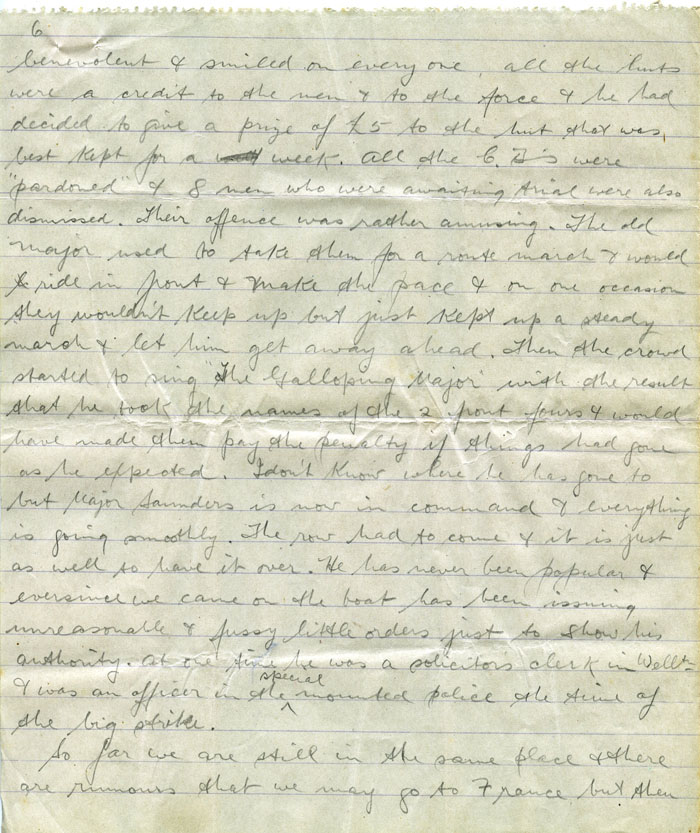 6
benevolent & smiled on every one, all the huts
were a credit to the men & to the force & he had
decided to give a prize of £5 to the hut that was
best kept for a week. All the C. B's were
"pardoned" & 8 men who were awaiting trial were also
dismissed. Their offence was rather amusing. The old
Major used to take them for a route march & would
ride in front & make the pace & on one occasion
they wouldn't keep up but just kept up a steady
march & let him get away ahead. Then the crowd
started to sing "The Galloping Major" with the result
that he took the names of the 2 front fours & would
have made them pay the penalty if things had gone
as he expected. I don't know where he has gone to
but Major Saunders is now in command & everything
is going smoothly. The row had to come & it is just
as well to have it over. He has never been popular &
eversince we came on the boat has been issuing
unreasonable & fussy little orders just to show his
authority. At one time he was a solicitors clerk in Welltn
& was an officer in the special mounted police the time of
the big strike.
So far we are still in the same place & there
are rumours that we may go to France but then